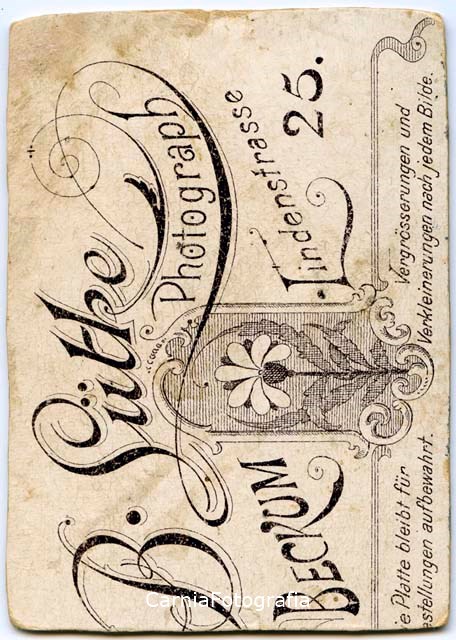 B. Lüthe
Photograph
BECKUM
Lindenstrasse 25.
e Platte bleibt für
estellungen aufbewahrt.
Vergrösserungen und
Verkleinerungen nach jedem Bilde.
CarniaFotografia